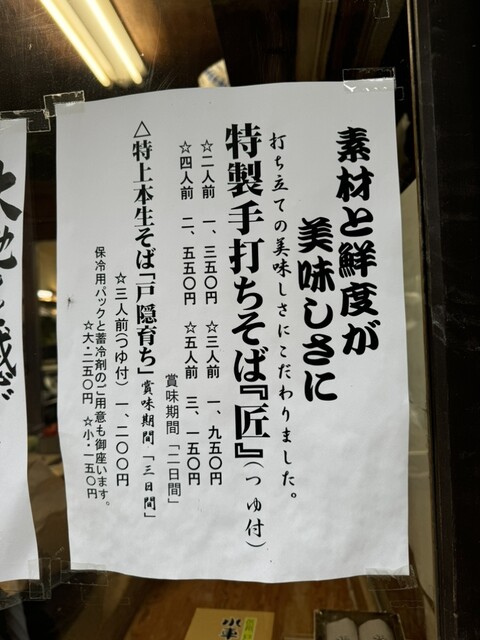 素材と鮮度が
美味しさに
打ち立ての美味しさにこだわりました。
特製手打ちそば『匠』(つゆ付)
☆二人前 一、三五〇円 ☆三人前 一、九五〇円
☆四人前 二、五五〇円 ☆五人前 三、一五〇円
賞味期間「二日間」
△特上本生そば「戸隠育ち」賞味期間「三日間」
☆三人前(つゆ付) 一、二〇〇円
保冷用パックと蓄冷剤のご用意も御座います。
☆大・二五〇円 ☆小・一五〇円